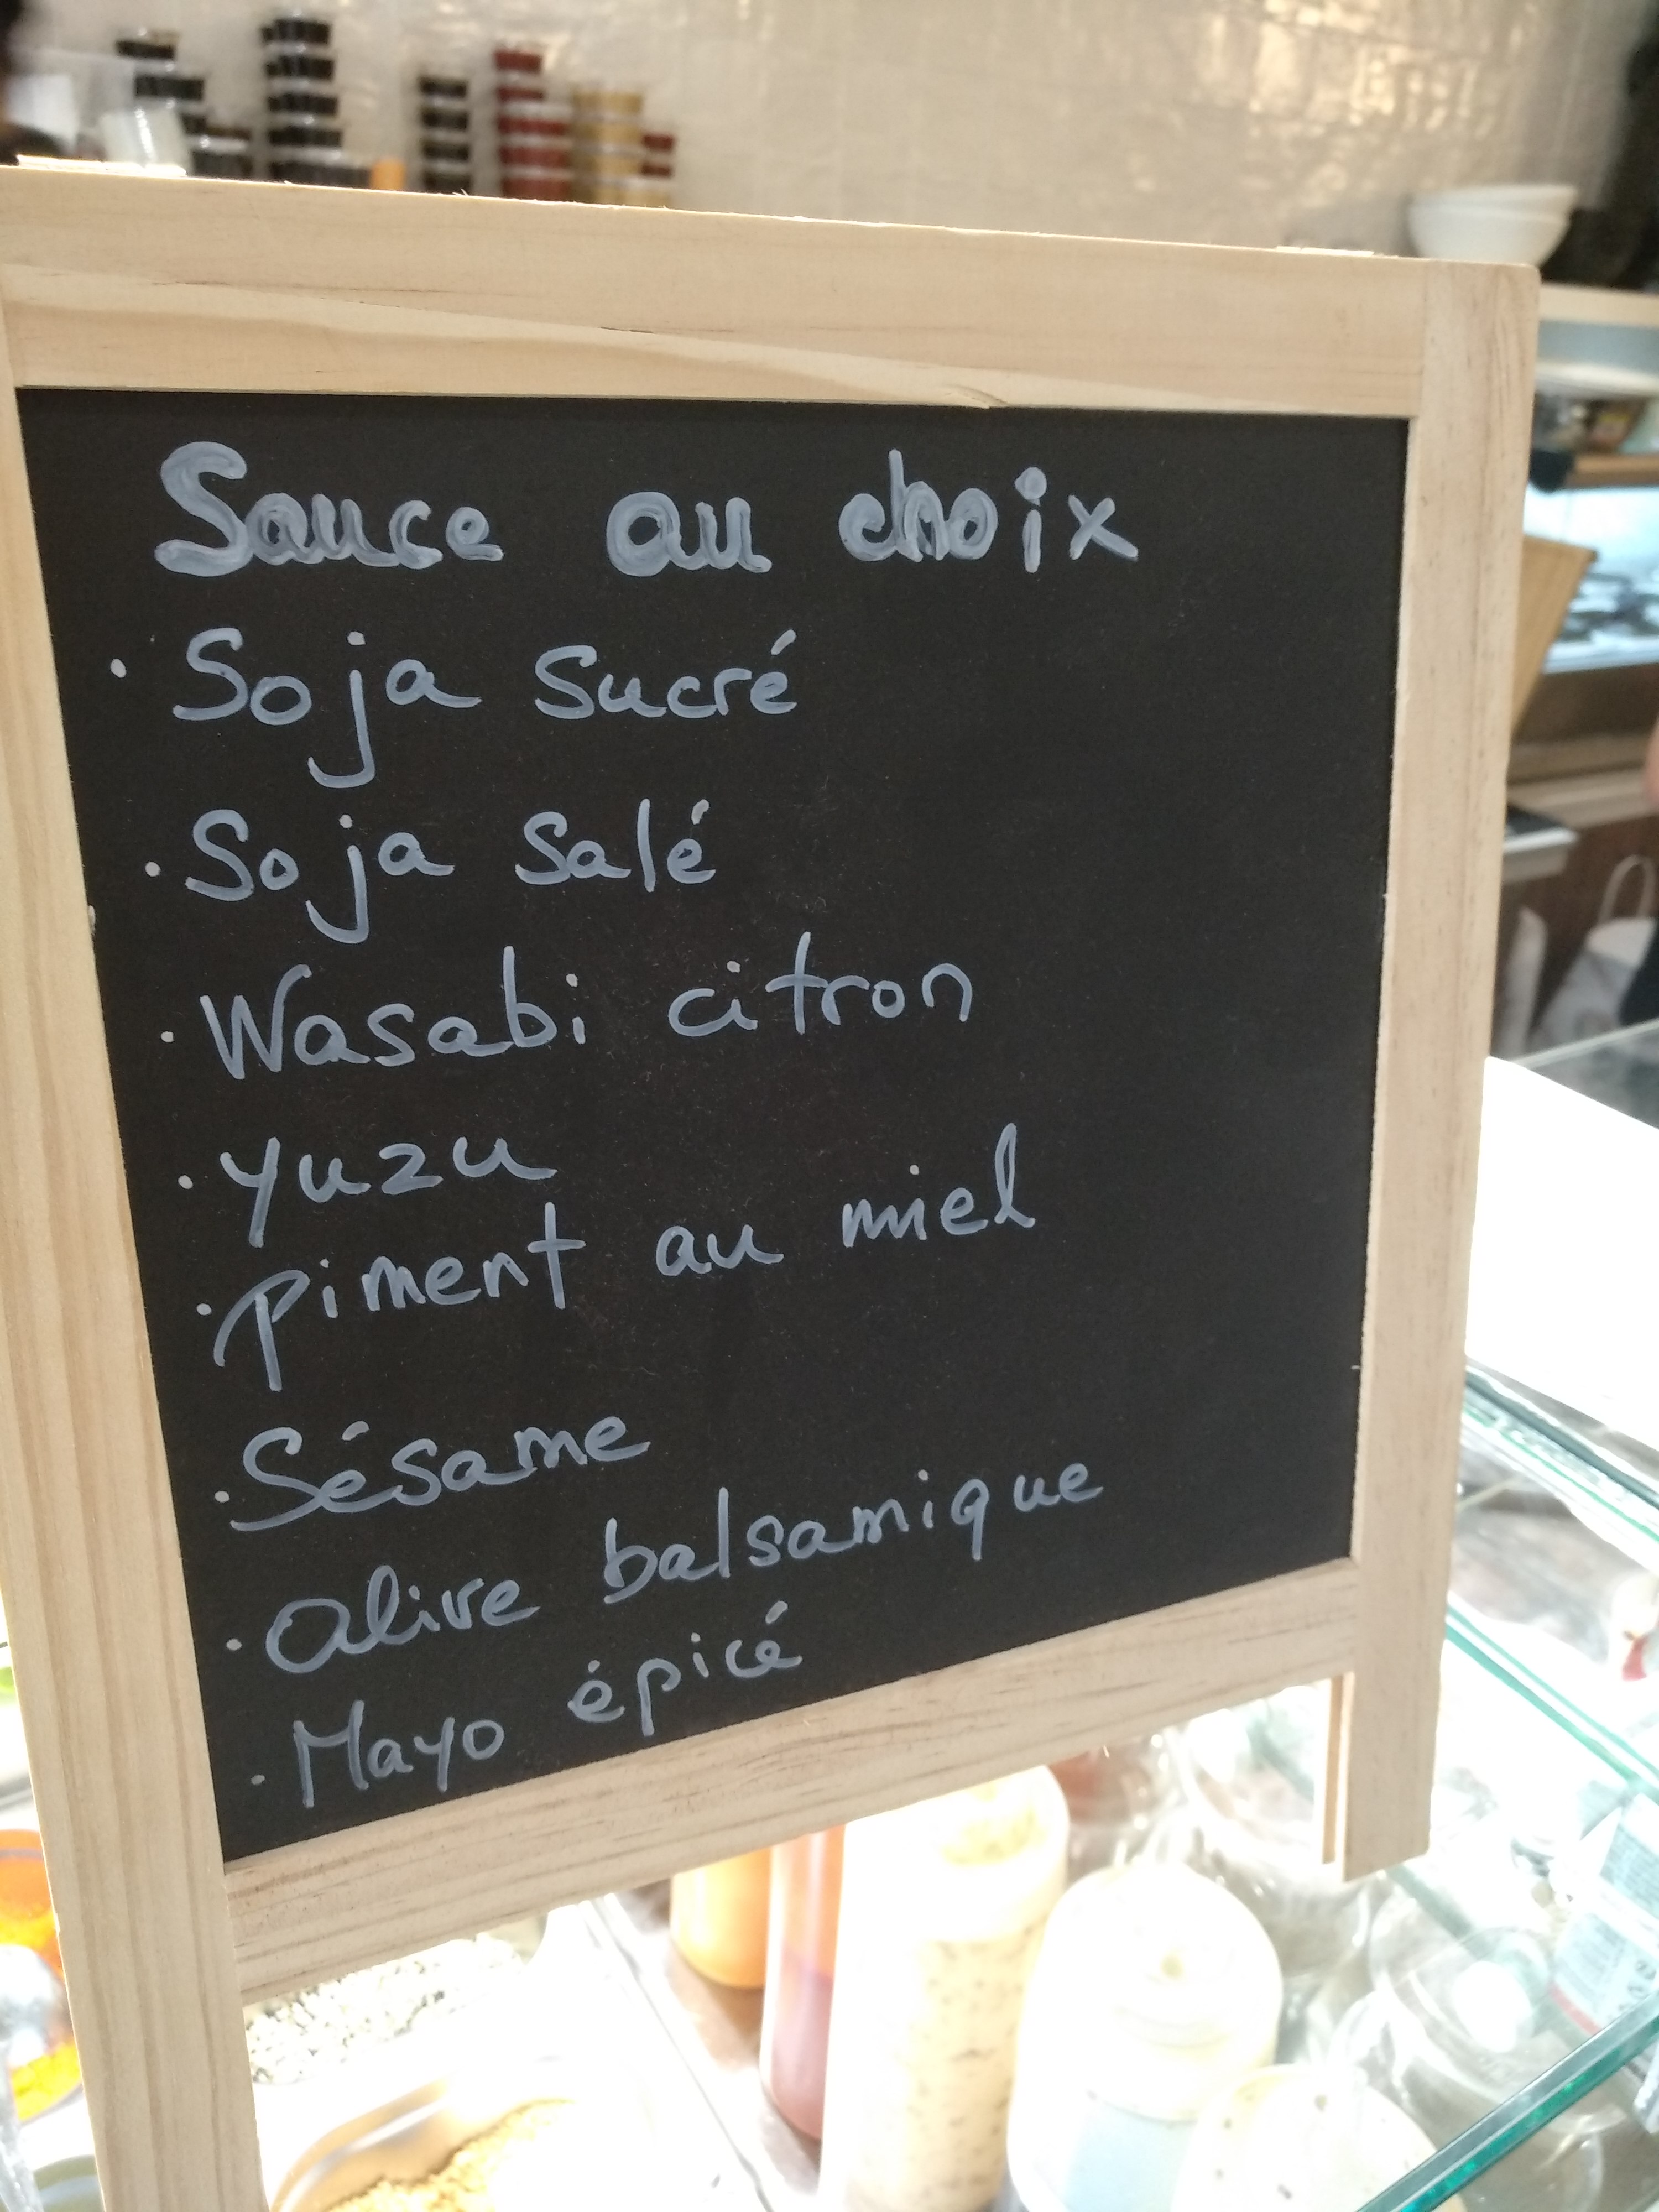 Sauce au choix
· Soja Sucré
· Soja Salé
· Wasabi citron
· yuzu
· piment au miel
· Sésame
· Olive balsamique
· Mayo épicé